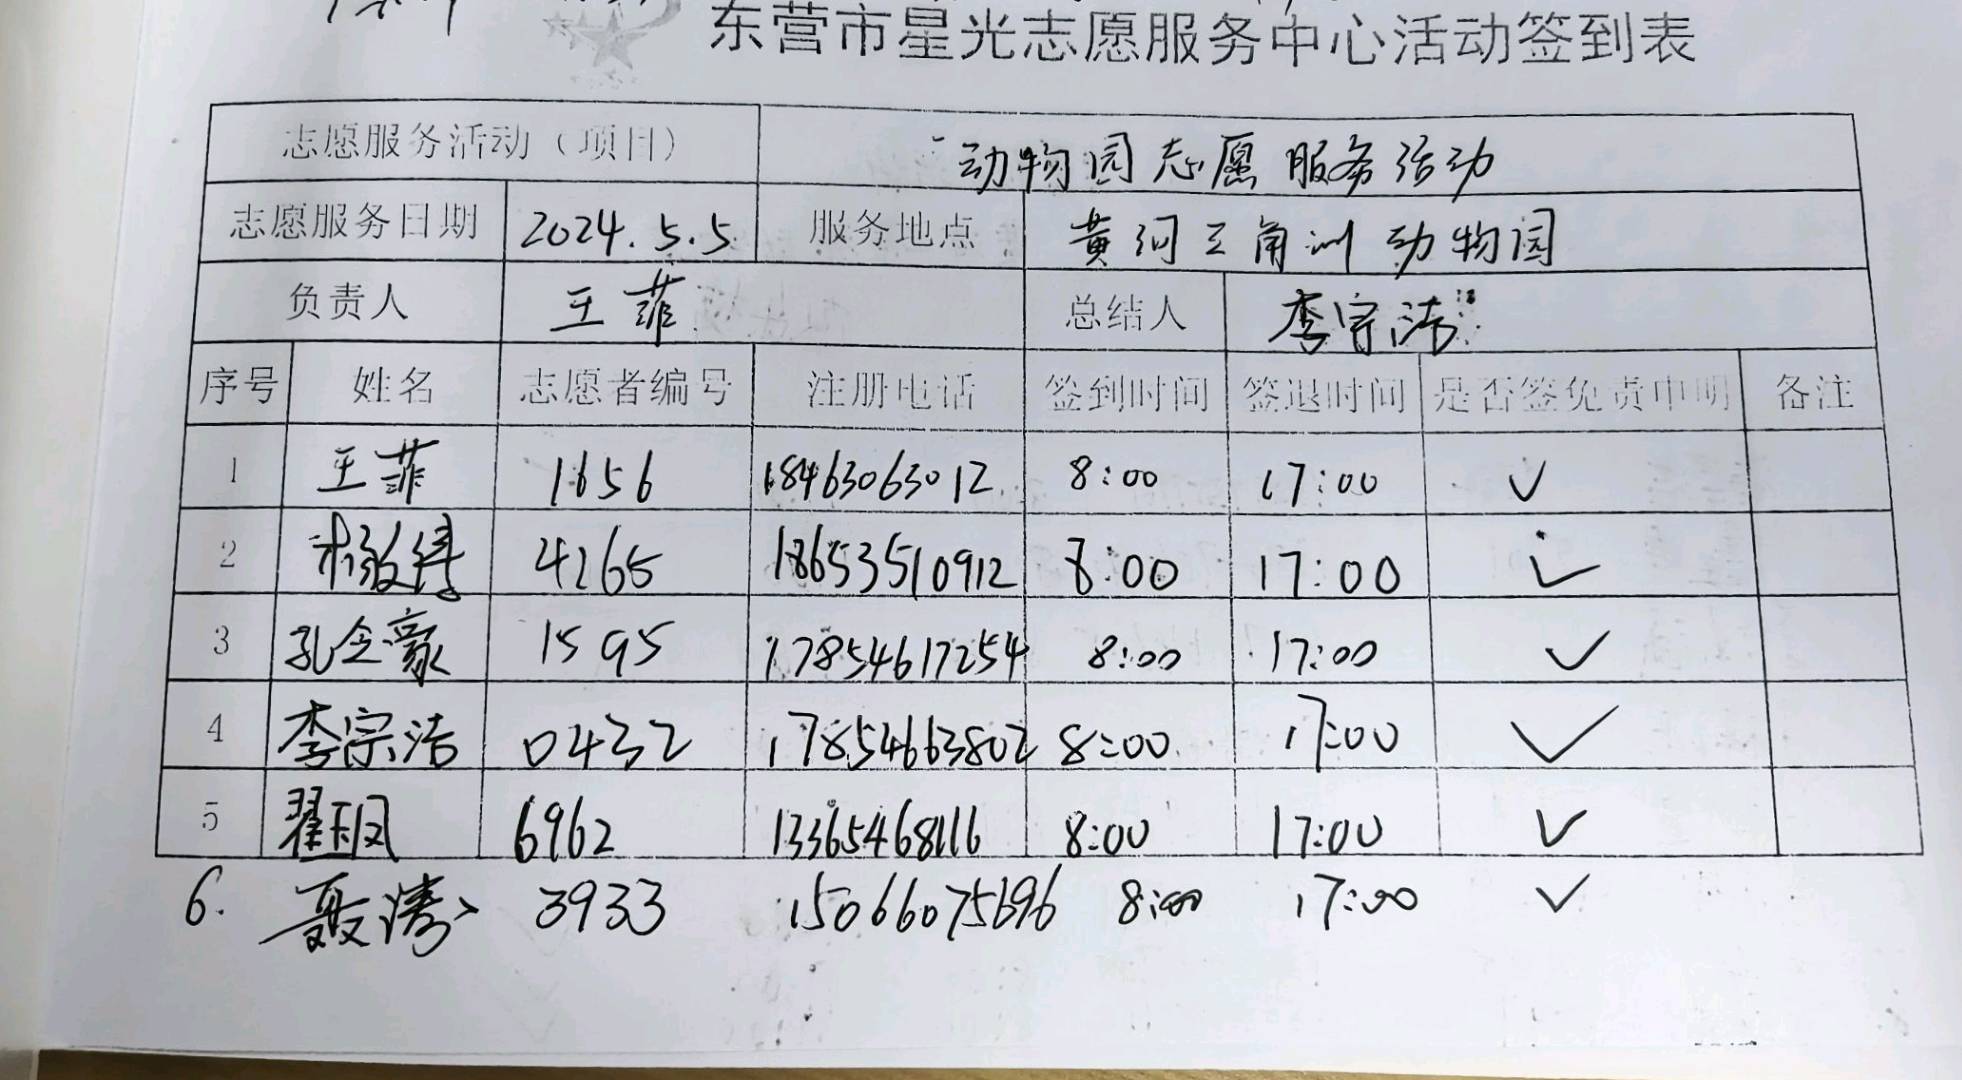 东营市星光志愿服务中心活动签到表
志愿服务活动（项目） 动物园志愿服务活动
志愿服务日期 2024.5.5 服务地点 黄河三角洲动物园
负责人 王菲 总结人 李宗洁
序号 姓名 志愿者编号 注册电话 签到时间 签退时间 是否签免责申明 备注
1 王菲 1656 18463063012 8:00 17:00 ✓
2 4265 18653510912 8:00 17:00 ✓
3 孔令豪 1595 17854617254 8:00 17:00 ✓
4 李宗洁 0432 17854663802 8:00 17:00 ✓
5 6962 13365468116 8:00 17:00 ✓
6. 聂涛 3933 15066075696 8:00 17:00 ✓